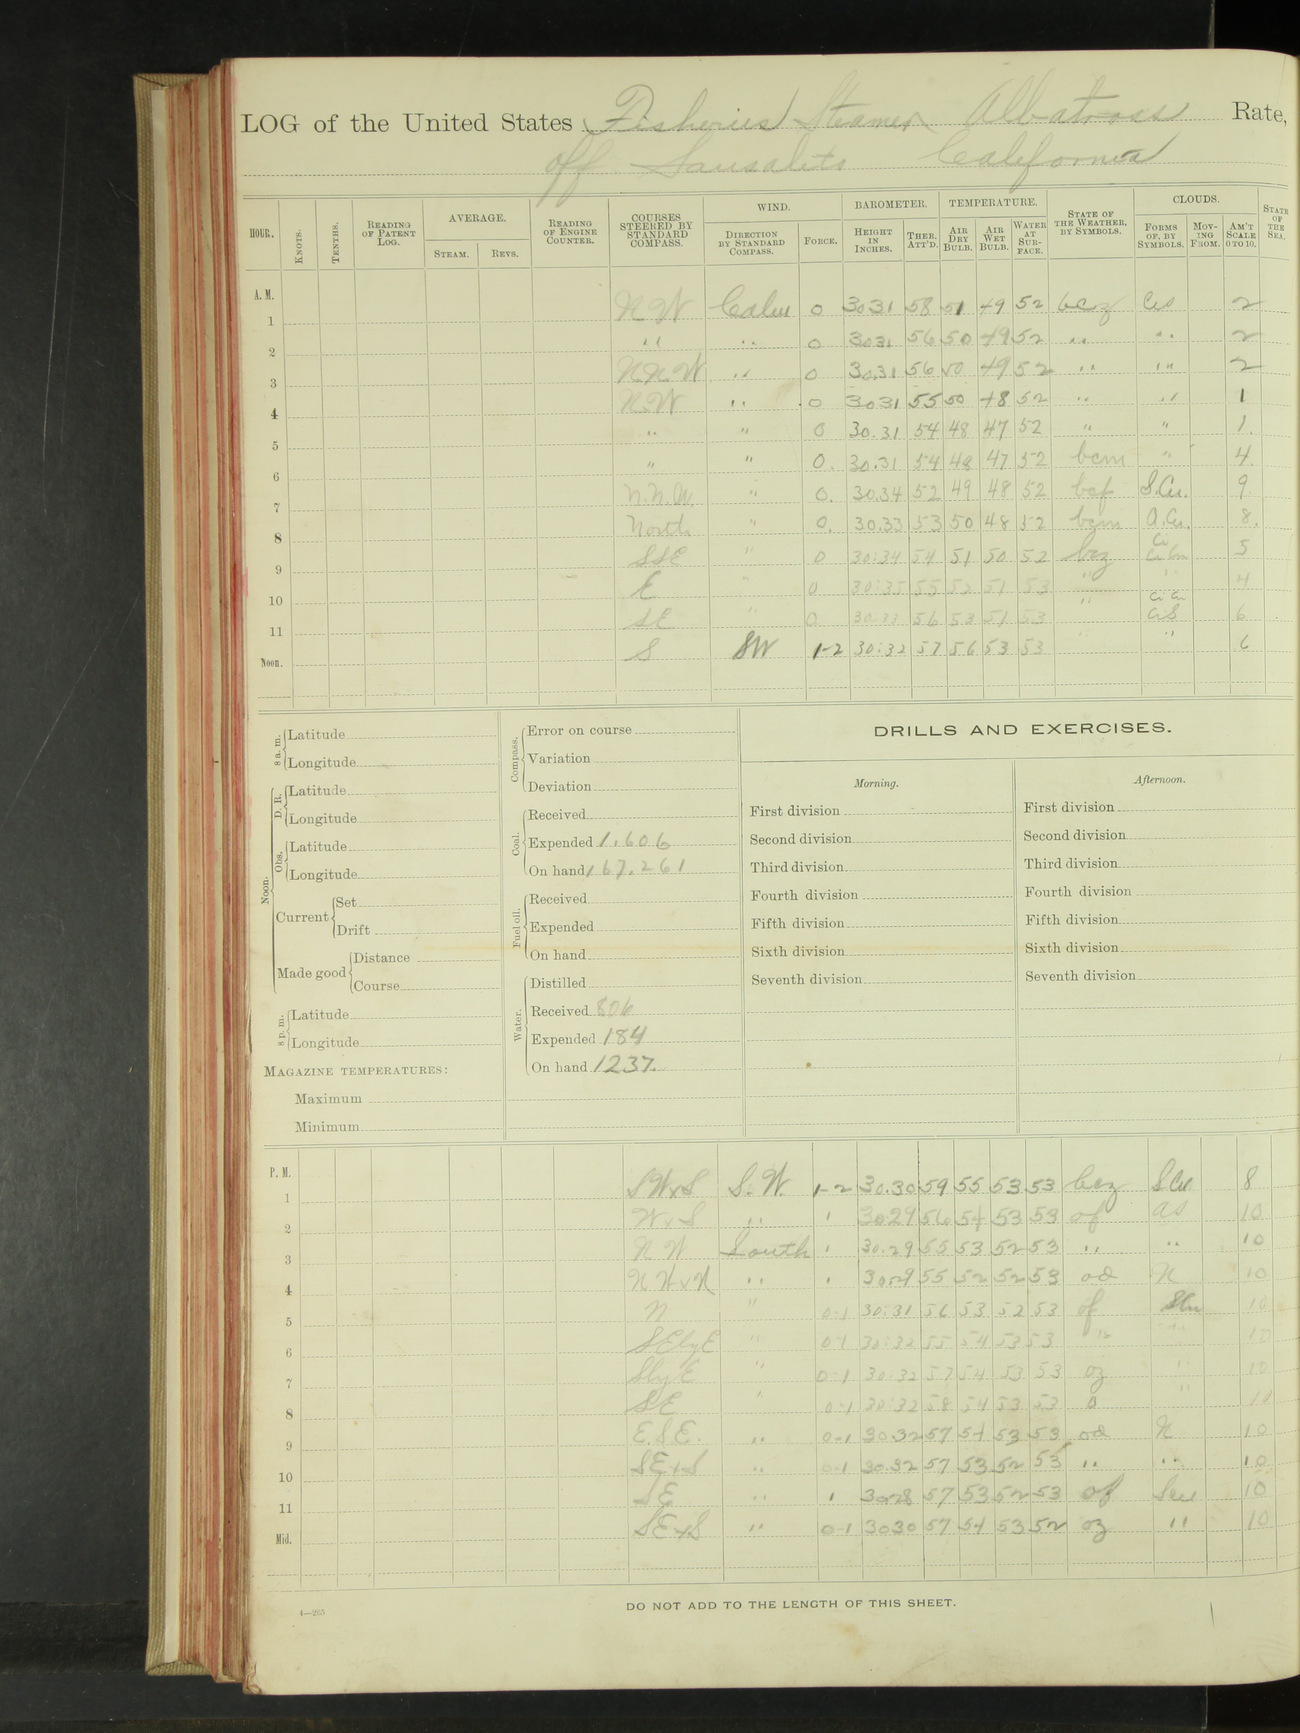 LOG of the United States Fisheries Steamer Albatross Rate,
off Sausalito California
HOUR. KNOTS. TENTHS. READING OF PATENT LOG. AVERAGE. STEAM. REVS. READING OF ENGINE COUNTER. COURSES STEERED BY STANDARD COMPASS. WIND. DIRECTION BY STANDARD COMPASS. FORCE. BAROMETER. HEIGHT IN INCHES. THER. ATT'D. TEMPERATURE. AIR DRY BULB. AIR WET BULB. WATER AT SURFACE. STATE OF THE WEATHER, BY SYMBOLS. CLOUDS. FORMS OF, BY SYMBOLS. MOVING FROM. AM'T SCALE 0 TO 10. STATE OF THE SEA.
A. M.
1 NW Calm 0 30.31 58 51 49 52 bcz Cis 2
2 " " 0 30.31 56 50 49 52 " " 2
3 N.N.W " 0 30.31 56 50 49 52 " " 2
4 N.W " 0 30.31 55 50 48 52 " " 1
5 " " 0 30.31 54 48 47 52 " " 1.
6 " " 0. 30.31 54 48 47 52 bcm " 4.
7 N.N.W. " 0. 30.34 52 49 48 52 bcf S.Cu. 9.
8 North " 0. 30.33 53 50 48 52 bcm A.Cu. 8.
9 SSE " 0 30:34 54 51 50 52 bcz Ci 5
10 E " 0 30:35 55 52 51 53 " " 4
11 SE " 0. 56 53 51 53 " Ci Cu Ci S 6
Noon. S SW 1-2 30:32 57 56 53 53 " " 6
8 a. m. Latitude
Longitude
Noon. D. R. Latitude
Longitude
Obs. Latitude
Longitude
Current Set
Drift
Made good Distance
Course
8 p. m. Latitude
Longitude
MAGAZINE TEMPERATURES:
Maximum
Minimum
Compass. Error on course
Variation
Deviation
Coal. Received
Expended 1,606
On hand 167,261
Fuel oil. Received
Expended
On hand
Water. Distilled
Received 806
Expended 184
On hand 1237.
DRILLS AND EXERCISES.
Morning.
First division
Second division
Third division
Fourth division
Fifth division
Sixth division
Seventh division
Afternoon.
First division
Second division
Third division
Fourth division
Fifth division
Sixth division
Seventh division
P. M.
1 SWxS S.W. 1-2 30.30 59 55 53 53 bcz SCu 8
2 WxS " 1 30.29 56 54 53 53 of AS 10
3 NW South 1 30.29 55 53 52 53 " " 10
4 NWxN " 1 30.29 55 52 52 53 od N 10
5 N " 0-1 30:31 56 53 52 53 of SCu 10
6 SEbyE " 0-1 30:32 55 54 53 53 " " 10
7 SbyE " 0-1 30:32 57 54 53 53 oz " 10
8 SE " 0-1 30:32 58 54 53 53 o " 10
9 E.S.E. " 0-1 30.32 57 54 53 53 od N 10
10 SExS " 0-1 30.32 57 53 52 53 " " 10
11 SE " 1 30.28 57 53 52 53 of Scu 10
Mid. SExS " 0-1 30.30 57 54 53 52 oz " 10
4—265
DO NOT ADD TO THE LENGTH OF THIS SHEET.